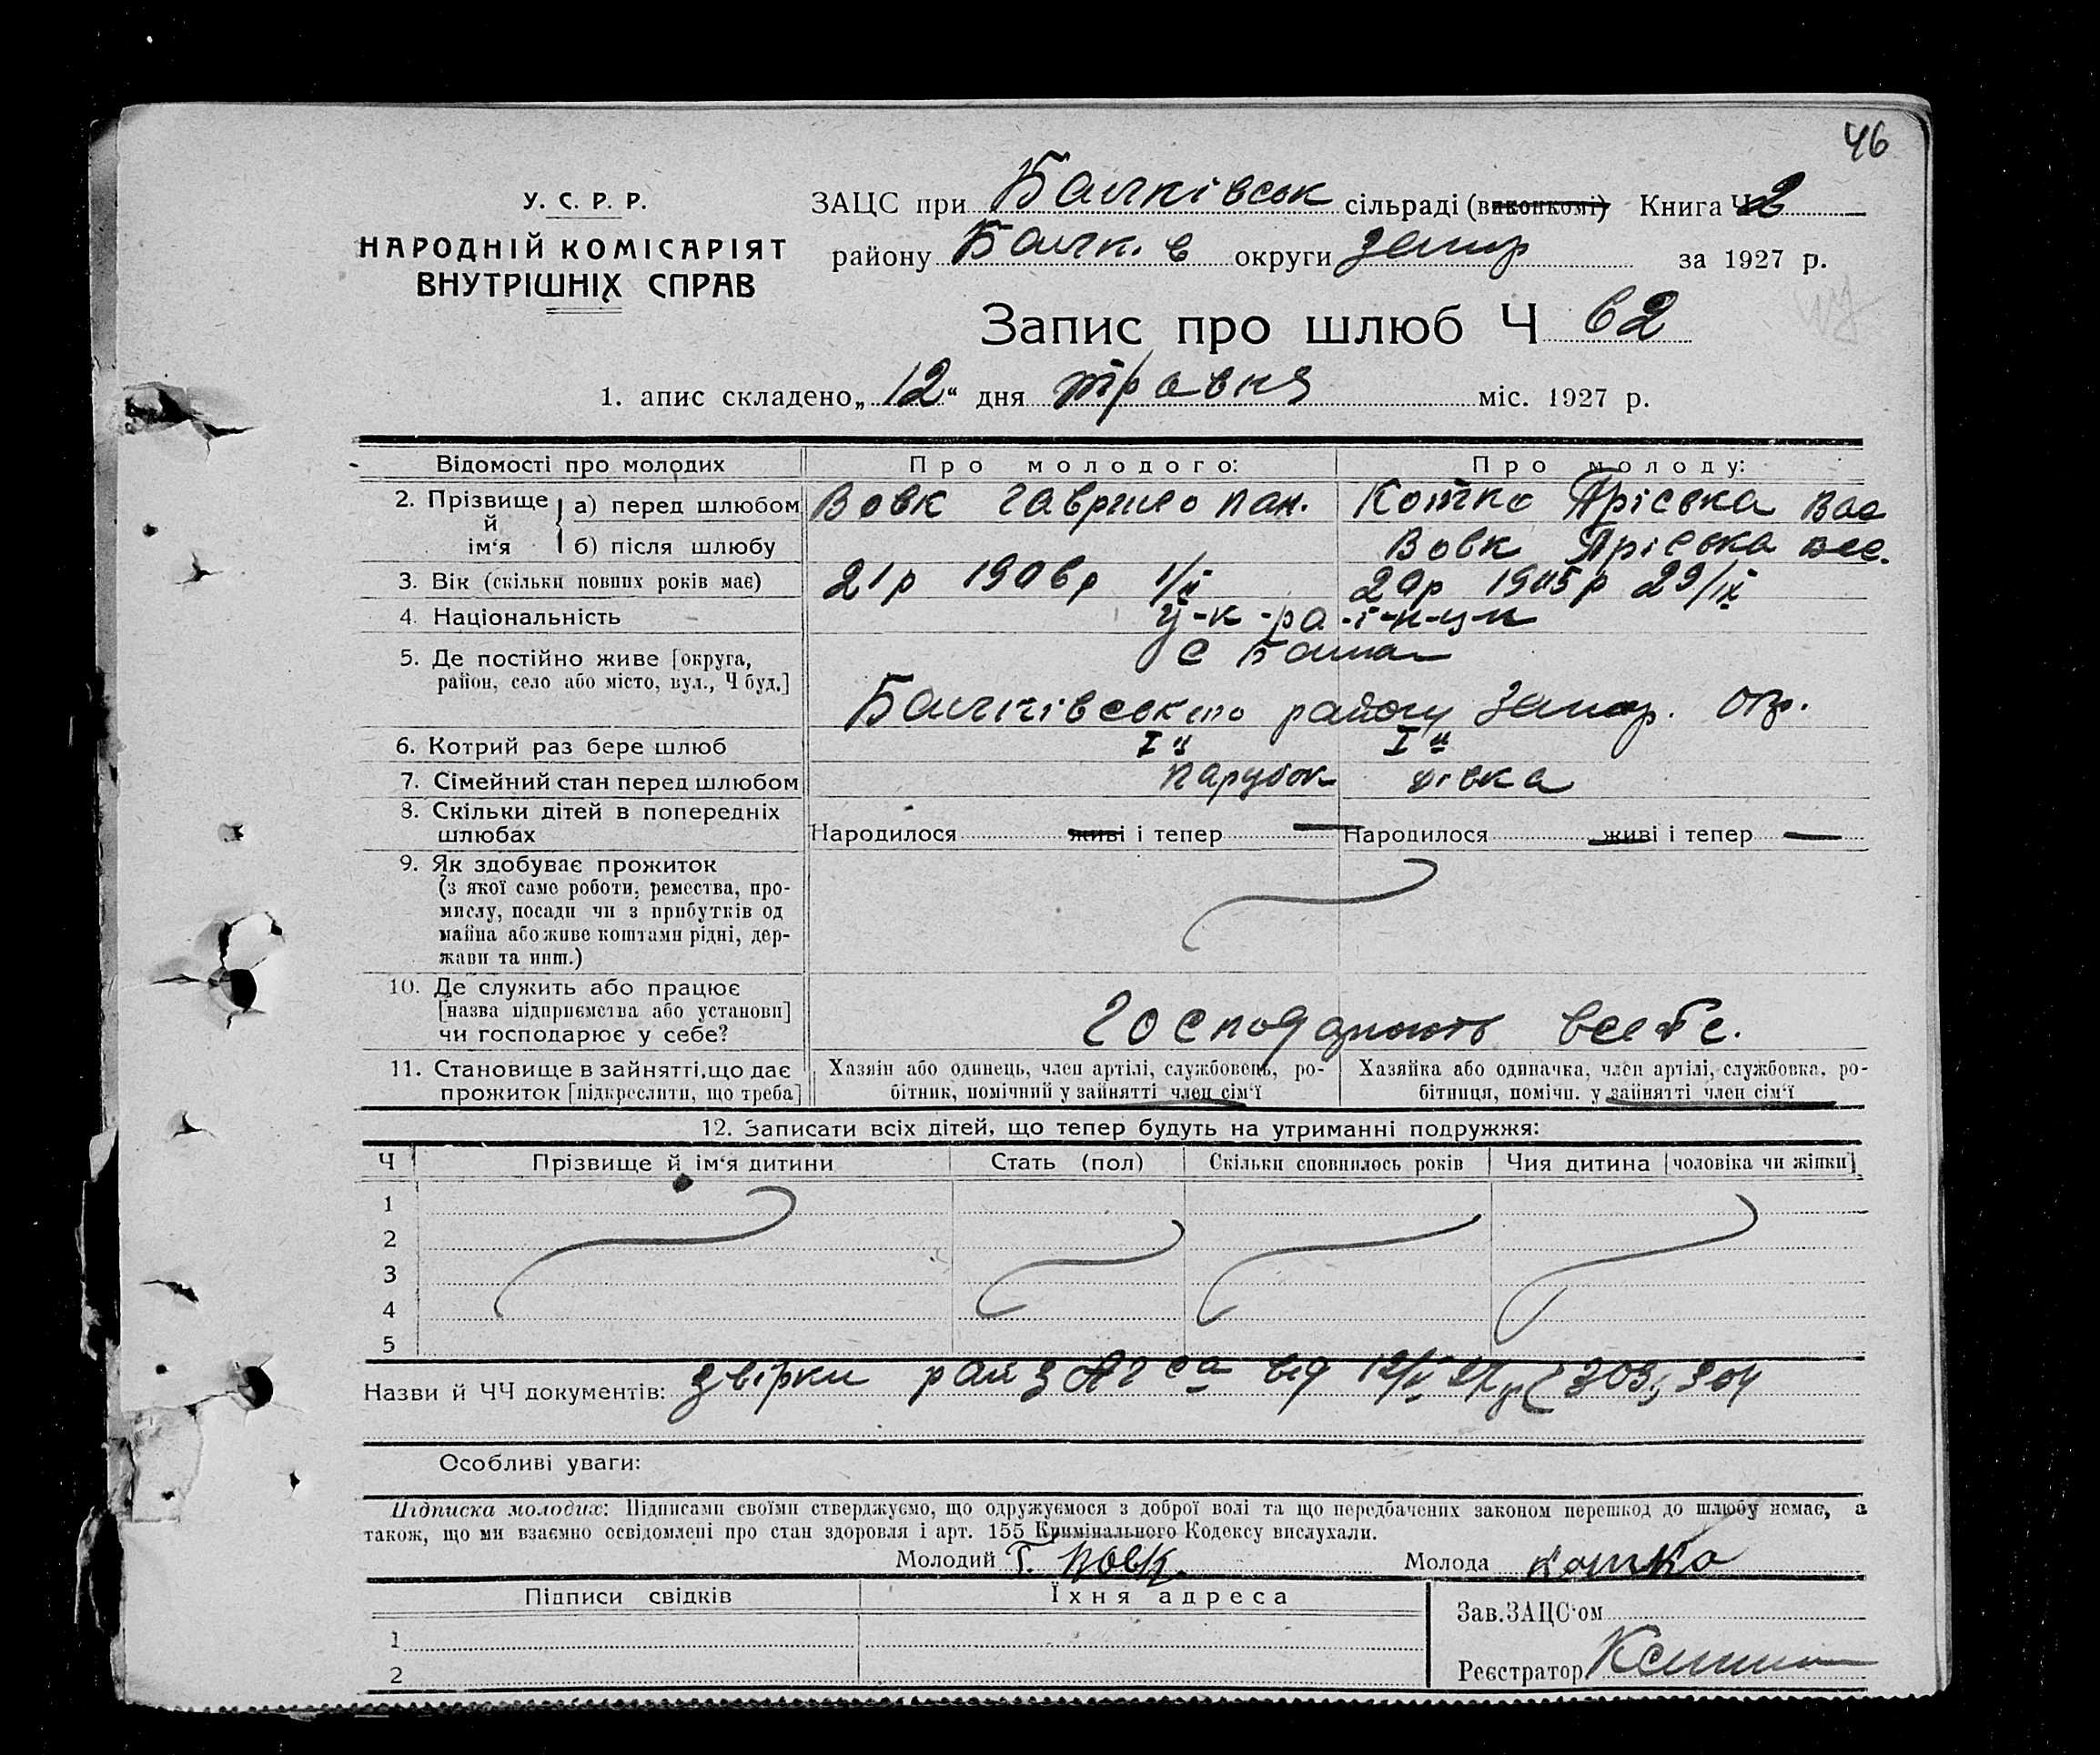 46
У. С. Р. Р.
НАРОДНІЙ КОМІСАРІЯТ
ВНУТРІШНІХ СПРАВ
ЗАЦС при Балківськ сільраді (виконкомі) Книга Ч 2
району Балків округи Запор за 1927 р.
Запис про шлюб Ч 62
1. апис складено „12“ дня травня міс. 1927 р.
Відомості про молодих Про молодого: Про молоду:
2. Прізвище й ім‘я а) перед шлюбом Вовк Гаврило Пан. Котко Пріська Вас
б) після шлюбу Вовк Пріська Вас.
3. Вік (скільки повних років має) 21р 1906р 20р 1905р 29/IX
4. Національність у-к-ра-ї-н-ц-і
5. Де постійно живе [округа, район, село або місто, вул., Ч буд.] с Балки
Балківського району Запор. окр.
6. Котрий раз бере шлюб I й I й
7. Сімейний стан перед шлюбом парубок дівка
8. Скільки дітей в попередніх шлюбах Народилося живі і тепер — Народилося живі і тепер —
9. Як здобуває прожиток
(з якої саме роботи, ремества, про-
мислу, посади чи з прибутків од
майна або живе коштами рідні, дер-
жави та инш.)
10. Де служить або працює
[назва підприємства або установи]
чи господарює у себе? Господарюють в себе.
11. Становище в зайнятті, що дає прожиток [підкреслити, що треба]
Хазяін або одинець, член артілі, службовець, ро-
бітник, помічний у зайнятті член сім‘ї
Хазяйка або одиначка, член артілі, службовка, ро-
бітниця, помічн. у зайнятті член сім‘ї
12. Записати всіх дітей, що тепер будуть на утриманні подружжя:
Ч Прізвище й ім‘я дитини Стать (пол) Скільки сповнилось років Чия дитина [чоловіка чи жінки]
1
2
3
4
5
Назви й ЧЧ документів: звірки райзАГСа від 12/V 27р 303, 304
Особливі уваги:
Підписка молодих: Підписами своїми стверджуємо, що одружуємося з доброї волі та що передбачених законом перешкод до шлюбу немає, а
також, що ми взаємно освідомлені про стан здоровля і арт. 155 Кримінального Кодексу вислухали.
Молодий Г. Вовк. Молода Котко
Підписи свідків Їхня адреса
Зав. ЗАЦС‘ом
1
Реєстратор
2